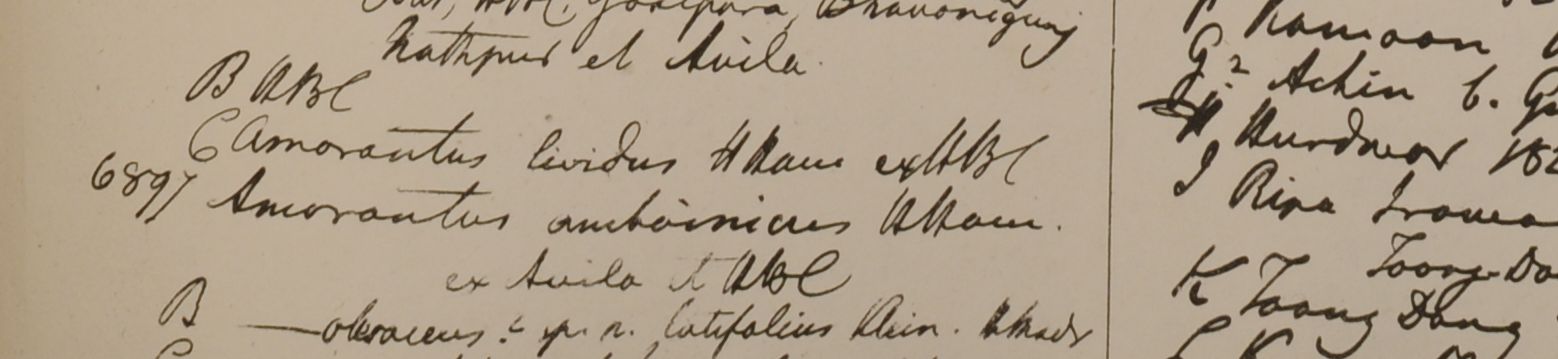 HBC. Gosipara, Bhavonigunj
Nathpur et Avila.
B HBC
C Amarantus lividus HHam ex HBC
6897 Amarantus amboinicus HHam.
ex Avila et HBC
B —— oleraceus: sp. n. latifolius Klein. HMadr
Kamaon
G? Achin
H Hurdwar 182
I Ripa Irawa
Toong-Do
K Toong Dong